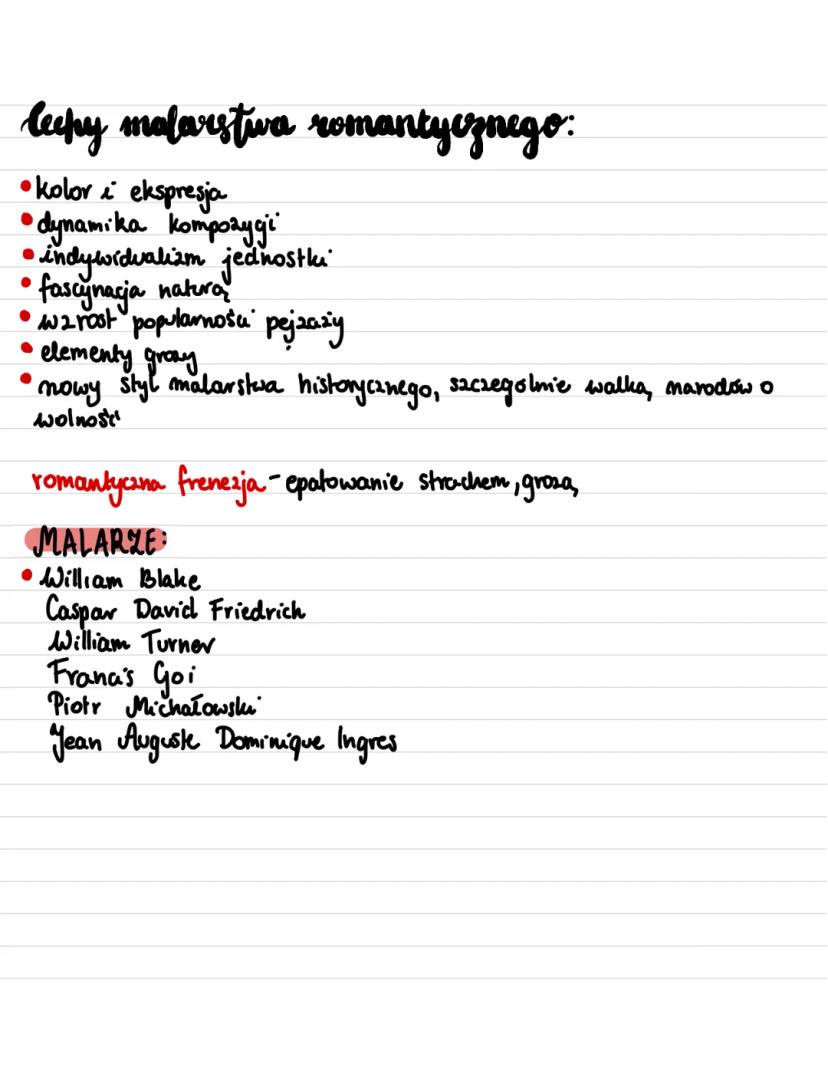 cechy malarstwa romantycznego:
• kolor i ekspresja
• dynamika kompozycji
• indywidualizm jednostki
• fascynacja naturą
• wzrost popularności pejzaży
• elementy grozy
• nowy styl malarstwa historycznego, szczególnie walką narodów o
wolność
romantyczna frenezja - epatowanie strachem, grozą
MALARZE:
• William Blake
Caspar David Friedrich
William Turner
Francis Goi
Piotr Michałowski
Jean Auguste Dominique Ingres